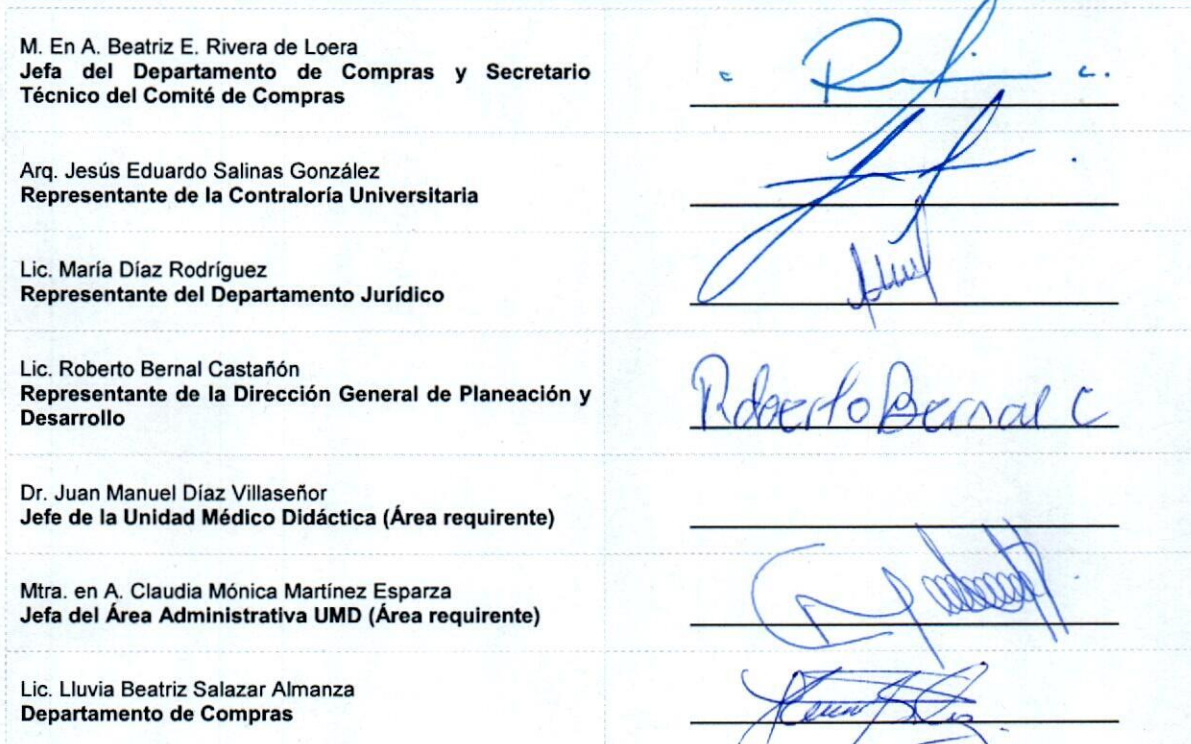 M. En A. Beatriz E. Rivera de Loera
Jefa del Departamento de Compras y Secretario
Técnico del Comité de Compras
Arq. Jesús Eduardo Salinas González
Representante de la Contraloría Universitaria
Lic. María Díaz Rodríguez
Representante del Departamento Jurídico
Lic. Roberto Bernal Castañón
Representante de la Dirección General de Planeación y
Desarrollo
Roberto Bernal C
Dr. Juan Manuel Díaz Villaseñor
Jefe de la Unidad Médico Didáctica (Área requirente)
Mtra. en A. Claudia Mónica Martínez Esparza
Jefa del Área Administrativa UMD (Área requirente)
Lic. Lluvia Beatriz Salazar Almanza
Departamento de Compras